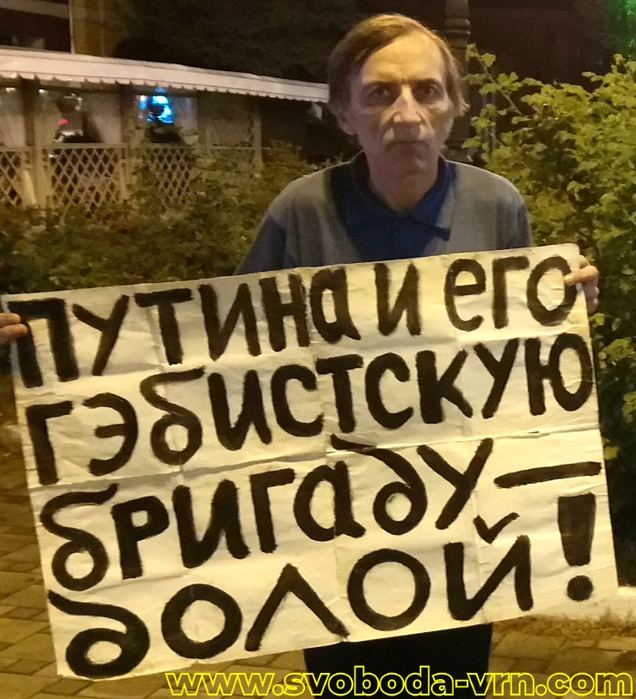 ПУТИНа и его
гэбистскую
бригаду —
долой!
www.svoboda-vrn.com